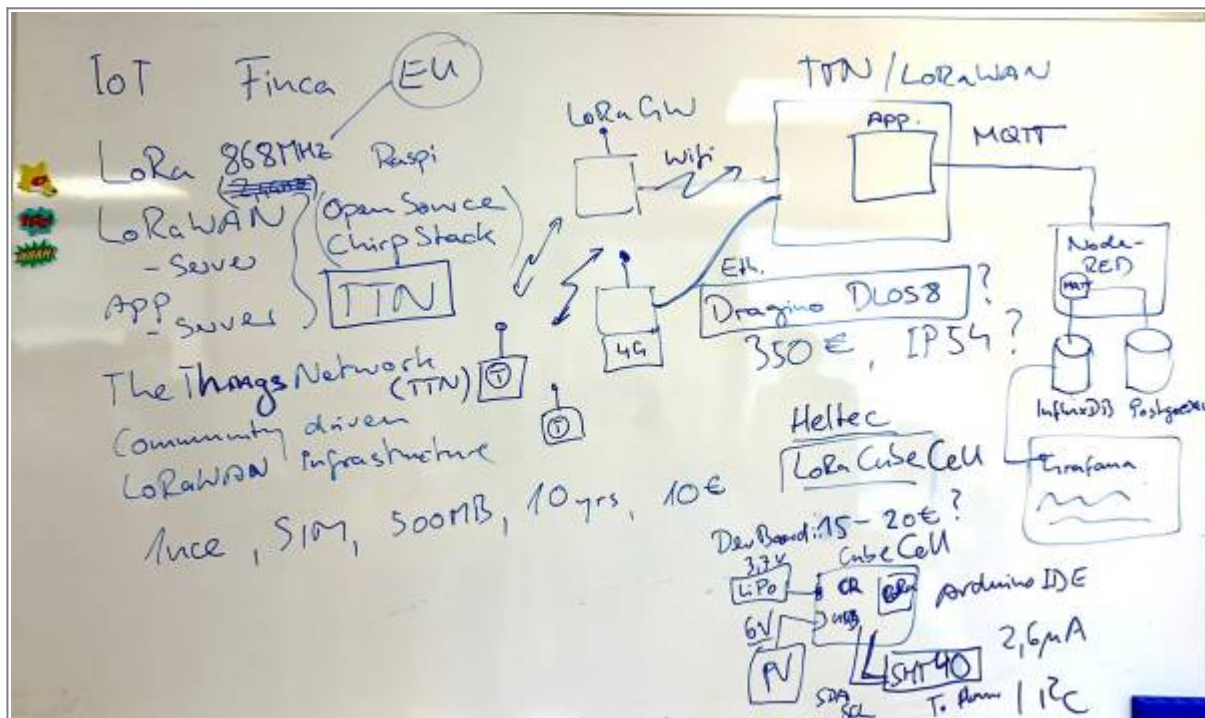 IoT Finca EU
LoRa 868MHz Raspi
LoRaWAN
- Server
App
- Server
(Open Source
ChirpStack)
TTN
The Things Network
(TTN)
Community driven
LoRaWAN Infrastructure
1nce, SIM, 500MB, 10yrs, 10€
LoRa GW
Wifi
T
T
4G
Eth.
TTN/LoRaWAN
App.
MQTT
Dragino DLOS8 ?
350€, IP54?
Node-
RED
MQTT
InfluxDB
Grafana
Heltec
LoRa CubeCell
Dev Board: 15-20€?
CubeCell
3,7V
LiPo
LoRa
USB
Arduino IDE
6V
PV
SHT40
2,6µA
SDA
SCL
I²C